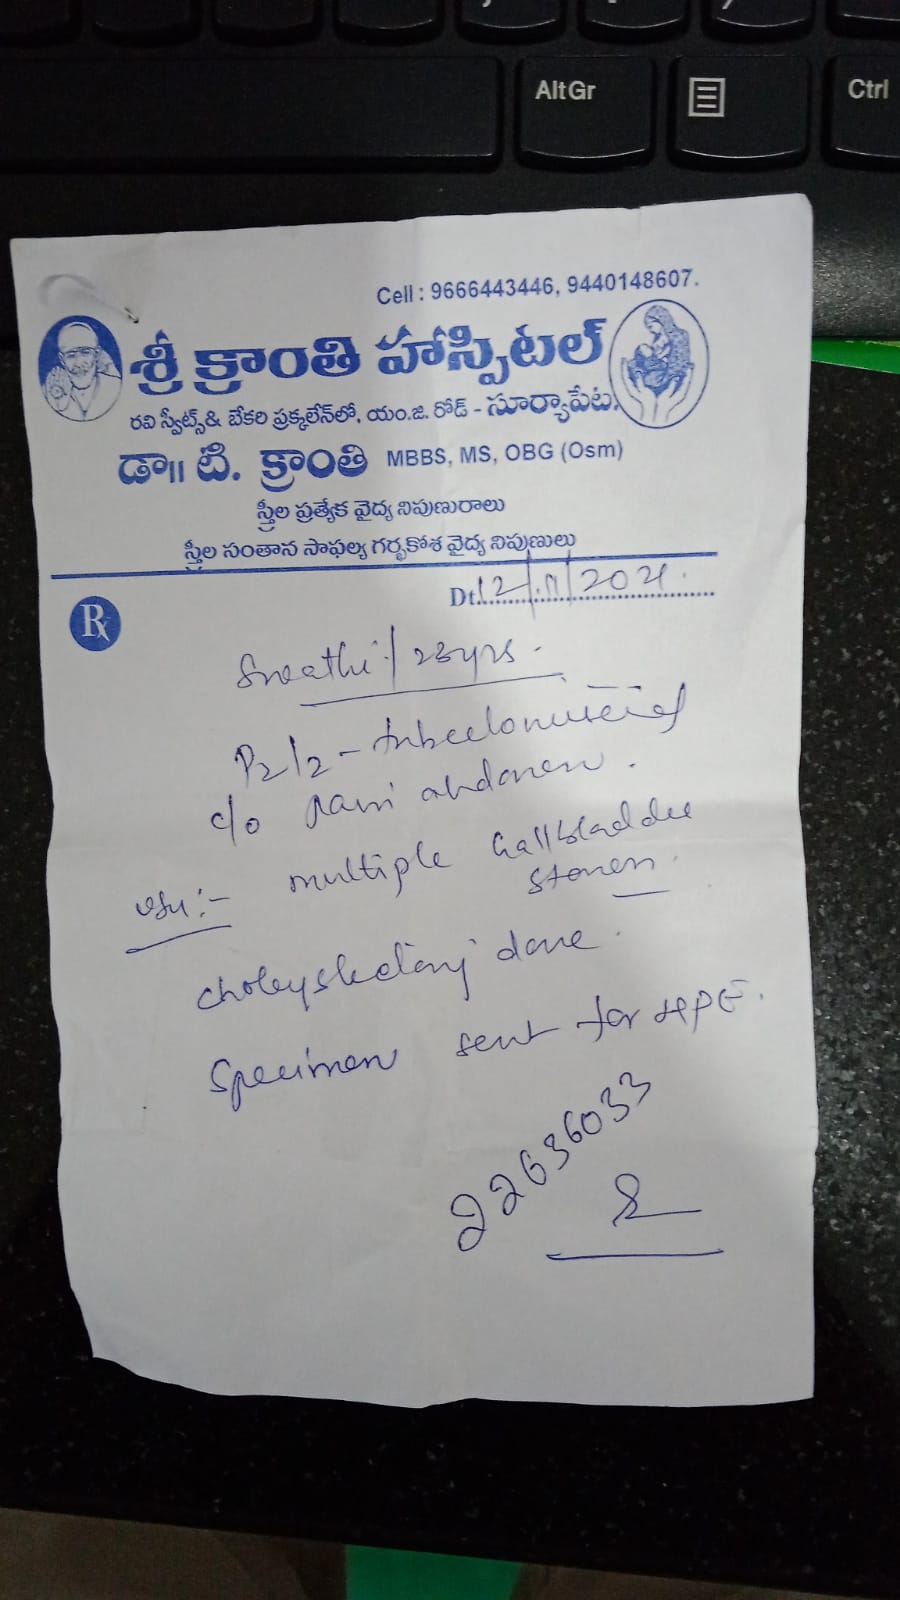 AltGr
Ctrl
Cell : 9666443446, 9440148607.
శ్రీ క్రాంతి హాస్పిటల్
రవి స్వీట్స్ & బేకరి ప్రక్కలేన్‌లో, యం.జి. రోడ్ - సూర్యాపేట.
డా॥ టి. క్రాంతి MBBS, MS, OBG (Osm)
స్త్రీల ప్రత్యేక వైద్య నిపుణురాలు
స్త్రీల సంతాన సాఫల్య గర్భకోశ వైద్య నిపుణులు
Dt. 12/11/2021.
Rx
23yrs.
P2L2 -
c/o Pain abdomen.
multiple Gallbladder
stones.
done.
Specimen sent for HPE.
22636033